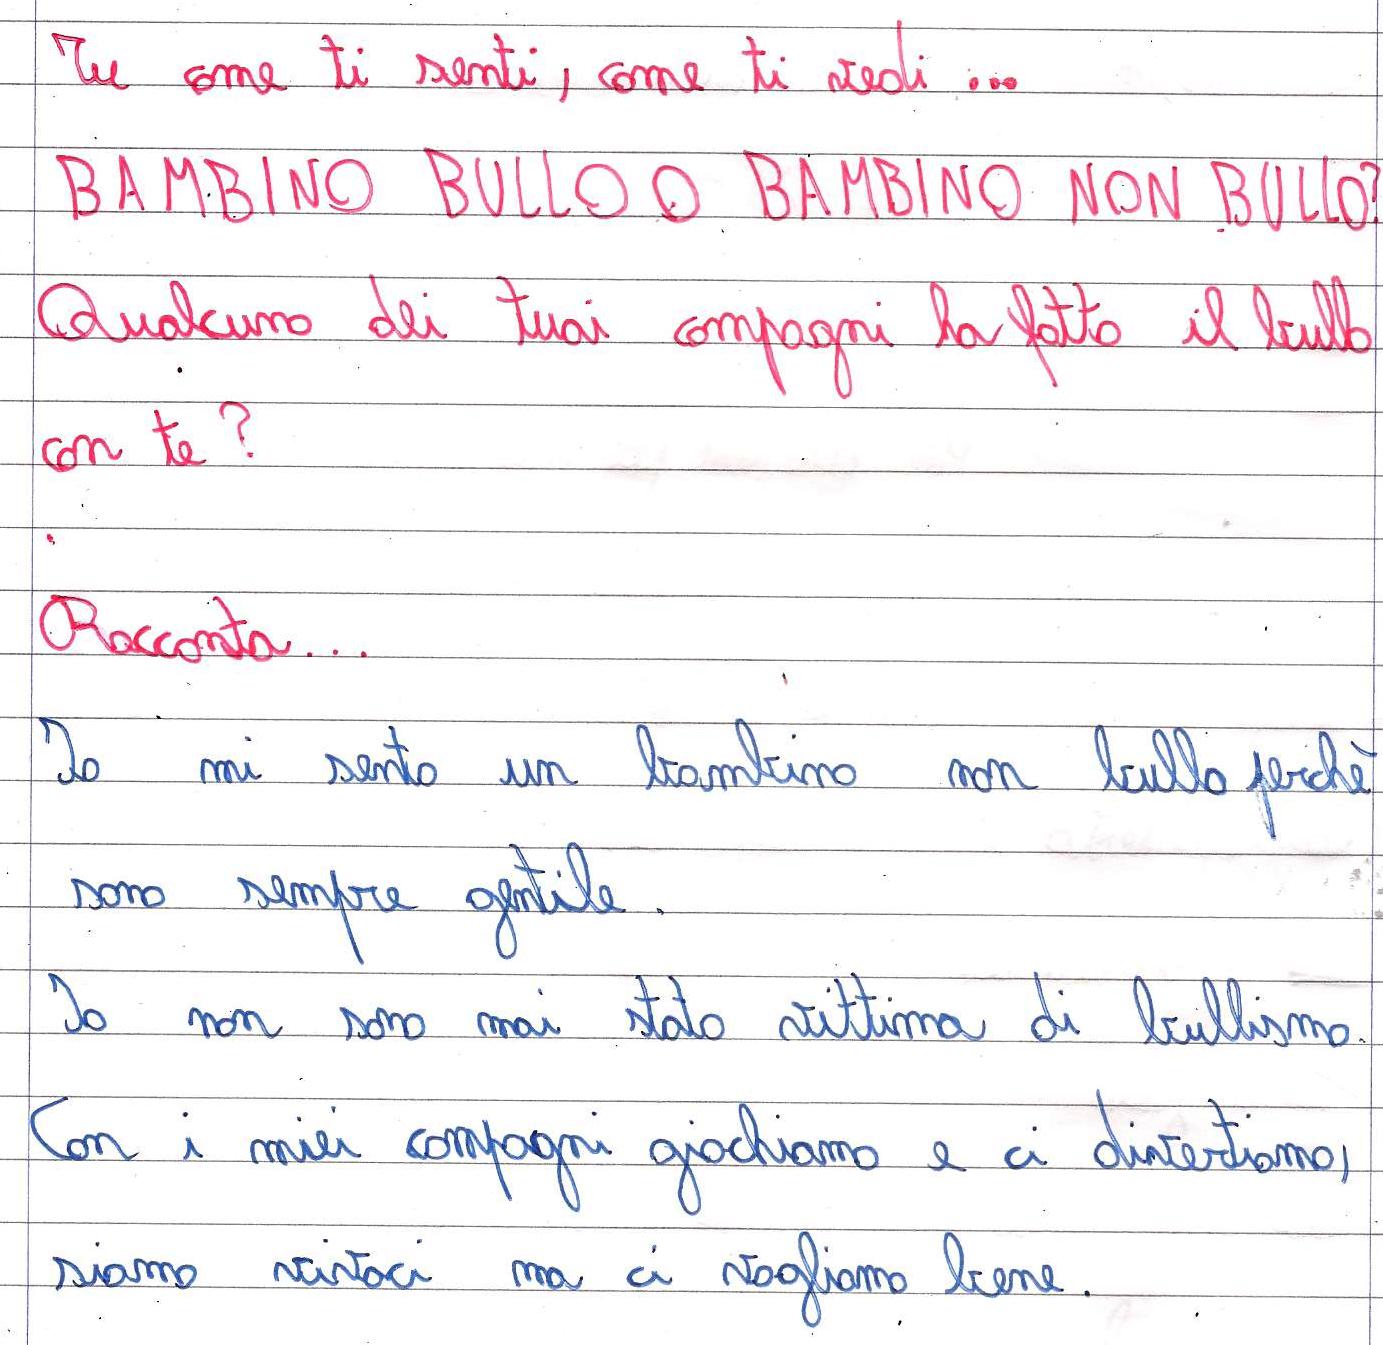 Tu come ti senti, come ti vedi ...
BAMBINO BULLO O BAMBINO NON BULLO?
Qualcuno dei tuoi compagni ha fatto il bullo
con te?
Racconta...
Io mi sento un bambino non bullo perchè
sono sempre gentile.
Io non sono mai stato vittima di bullismo.
Con i miei compagni giochiamo e ci divertiamo,
siamo vivaci ma ci vogliamo bene.